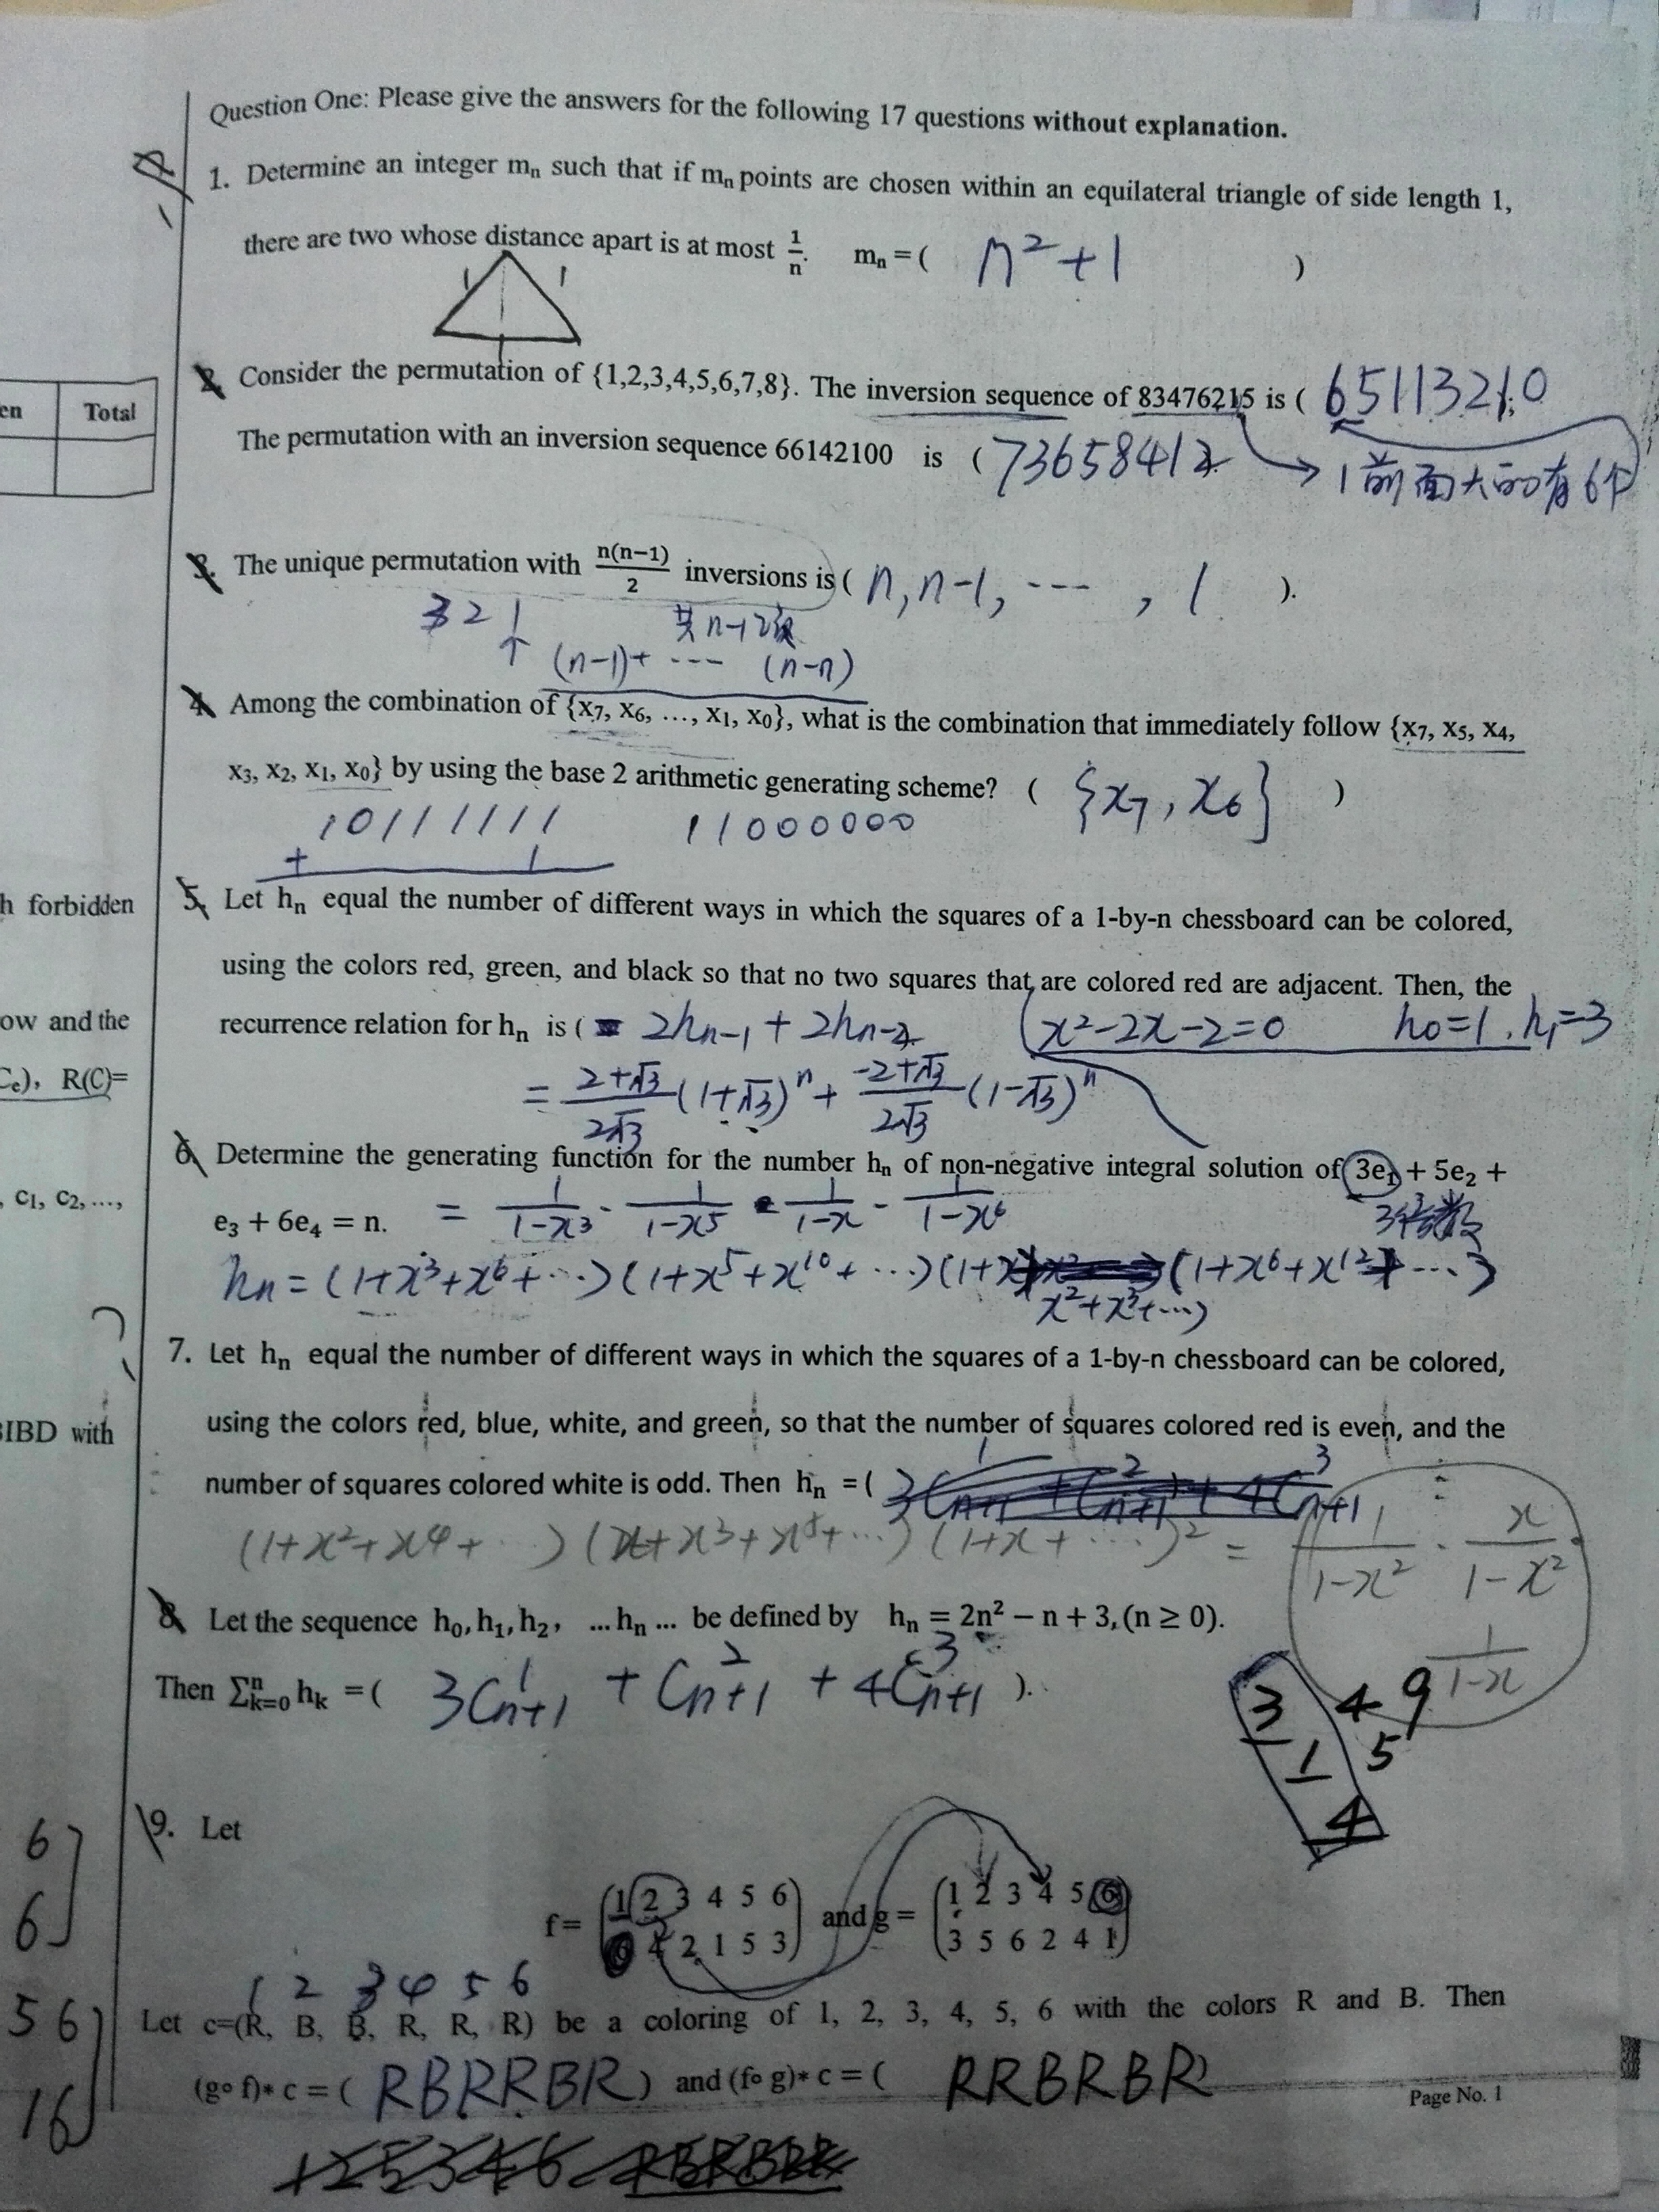 Question One: Please give the answers for the following 17 questions without explanation.
1. Determine an integer mₙ such that if mₙ points are chosen within an equilateral triangle of side length 1,
there are two whose distance apart is at most 1/n. mₙ = ( n²+1 )
1 1
2. Consider the permutation of {1,2,3,4,5,6,7,8}. The inversion sequence of 83476215 is ( 65113210
The permutation with an inversion sequence 66142100 is ( 73658412
1前面大的有6个
en Total
3. The unique permutation with n(n−1)/2 inversions is ( n, n-1, ---, 1 ).
3 2 1
(n-1)+ --- (n-n)
4. Among the combination of {x₇, x₆, …, x₁, x₀}, what is the combination that immediately follow {x₇, x₅, x₄,
x₃, x₂, x₁, x₀} by using the base 2 arithmetic generating scheme? ( {x₇, x₆} )
10111111 11000000
+ 1
h forbidden
5. Let hₙ equal the number of different ways in which the squares of a 1-by-n chessboard can be colored,
using the colors red, green, and black so that no two squares that are colored red are adjacent. Then, the
ow and the
recurrence relation for hₙ is ( 2hₙ₋₁ + 2hₙ₋₂ x²-2x-2=0 h₀=1, h₁=3
Cₑ), R(C)=
= (2+√3)/(2√3) (1+√3)ⁿ + (-2+√3)/(2√3) (1-√3)ⁿ
6. Determine the generating function for the number hₙ of non-negative integral solution of 3e₁ + 5e₂ +
, c₁, c₂, …,
e₃ + 6e₄ = n. = 1/(1-x³) · 1/(1-x⁵) · 1/(1-x) · 1/(1-x⁶) 3倍数
hₙ = (1+x³+x⁶+···)(1+x⁵+x¹⁰+···)(1+x+ (1+x⁶+x¹²+···)
x²+x³+···)
7. Let hₙ equal the number of different ways in which the squares of a 1-by-n chessboard can be colored,
using the colors red, blue, white, and green, so that the number of squares colored red is even, and the
BIBD with
number of squares colored white is odd. Then hₙ = (
(1+x²+x⁴+···)(x+x³+x⁵+···)(1+x+···)² = 1/(1-x²) · x/(1-x²)
1/(1-x)
8. Let the sequence h₀, h₁, h₂, …hₙ … be defined by hₙ = 2n² − n + 3, (n ≥ 0).
Then ∑ⁿₖ₌₀ hₖ = ( 3C¹ₙ₊₁ + C²ₙ₊₁ + 4C³ₙ₊₁ ).
3 4 9
1 5
4
6
6
9. Let
f = (1 2 3 4 5 6 / 6 4 2 1 5 3) and g = (1 2 3 4 5 6 / 3 5 6 2 4 1)
1 2 3 4 5 6
5 6
Let c=(R, B, B, R, R, R) be a coloring of 1, 2, 3, 4, 5, 6 with the colors R and B. Then
(g∘ f)∗ c = ( RBRRBR ) and (f∘ g)∗ c = ( RRBRBR )
16
Page No. 1